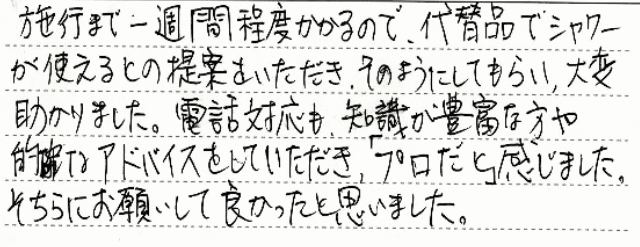 施行まで一週間程度かかるので、代替品でシャワー
が使えるとの提案をいただき、そのようにしてもらい、大変
助かりました。電話対応も、知識が豊富な方や
的確なアドバイスをしていただき、「プロだと」感じました。
そちらにお願いして良かったと思いました。